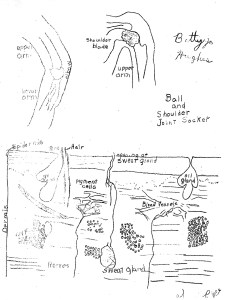 upper
arm
lower
arm
Shoulder
blade
upper
arm
Ball
and
Shoulder
Joint Socket
Epidermis
Hair
opening of
sweat gland
pigment
cells
oil
gland
Blood Vessels
Dermis
Nerves
Sweat gland